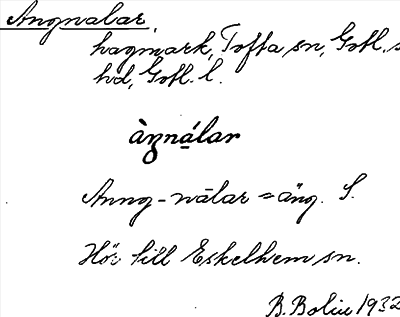 Angnalar.
hagmark, Tofta sn, Gotl. s
hd, Gotl. l.
àŋnálar
Anng-nālar = äng. S.
Hör till Eskelhem sn.
B. Bolin 1932